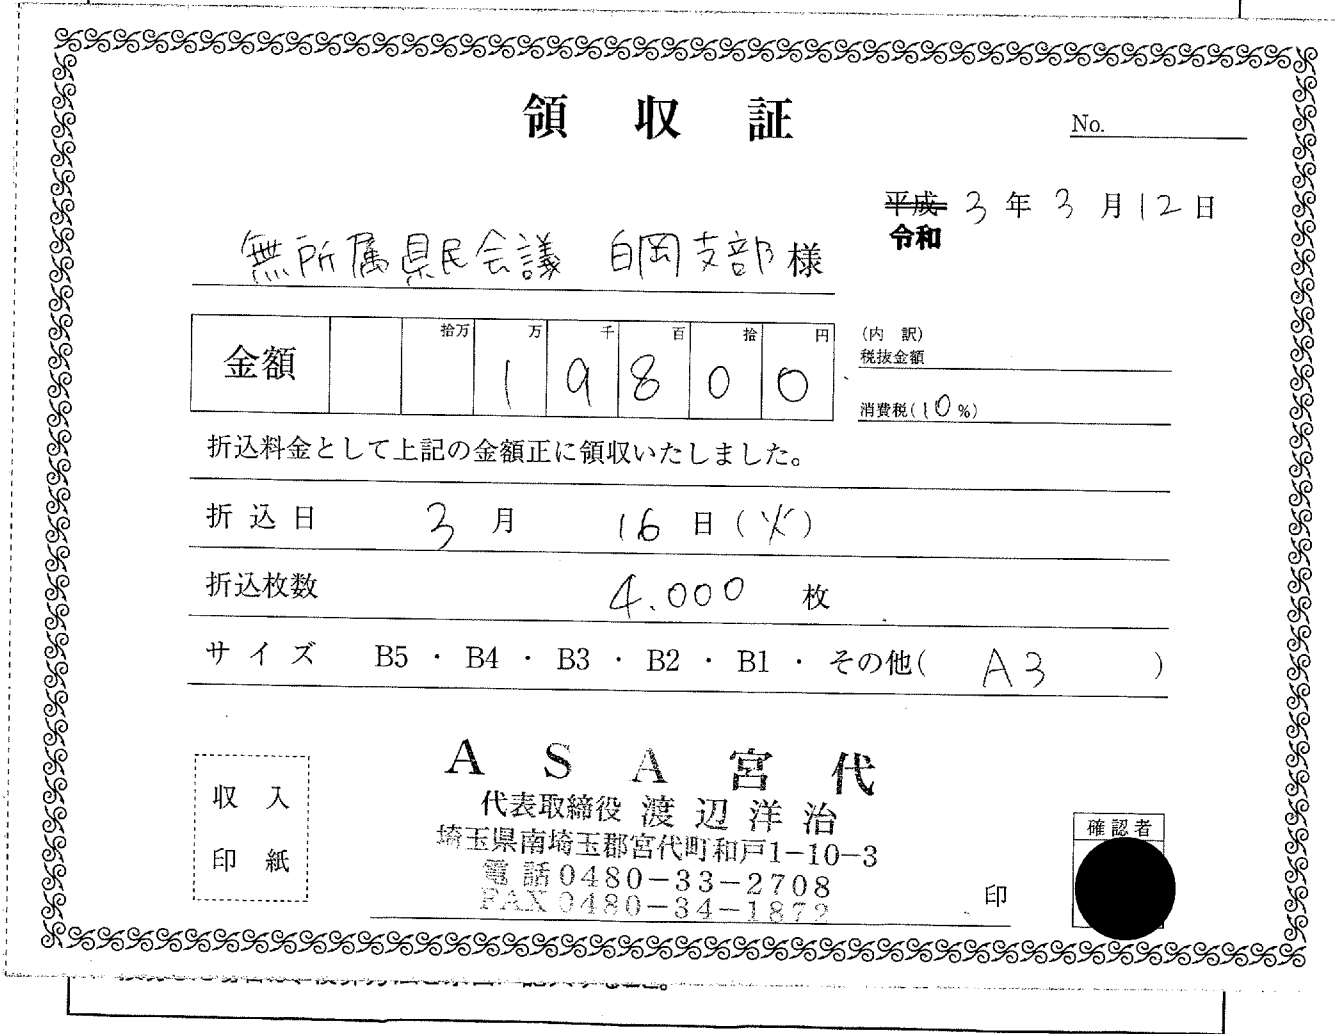 領収証
No.
平成 3年3月12日
令和
無所属県民会議 白岡支部様
金額 拾万 万 千 百 拾 円
1 9 8 0 0
(内 訳)
税抜金額
消費税(10%)
折込料金として上記の金額正に領収いたしました。
折込日 3月 16日(火)
折込枚数 4.000 枚
サイズ B5・B4・B3・B2・B1・その他( A3 )
収入
印紙
ASA宮代
代表取締役 渡辺洋治
埼玉県南埼玉郡宮代町和戸1-10-3
電話0480-33-2708
FAX 0480-34-1872
印
確認者